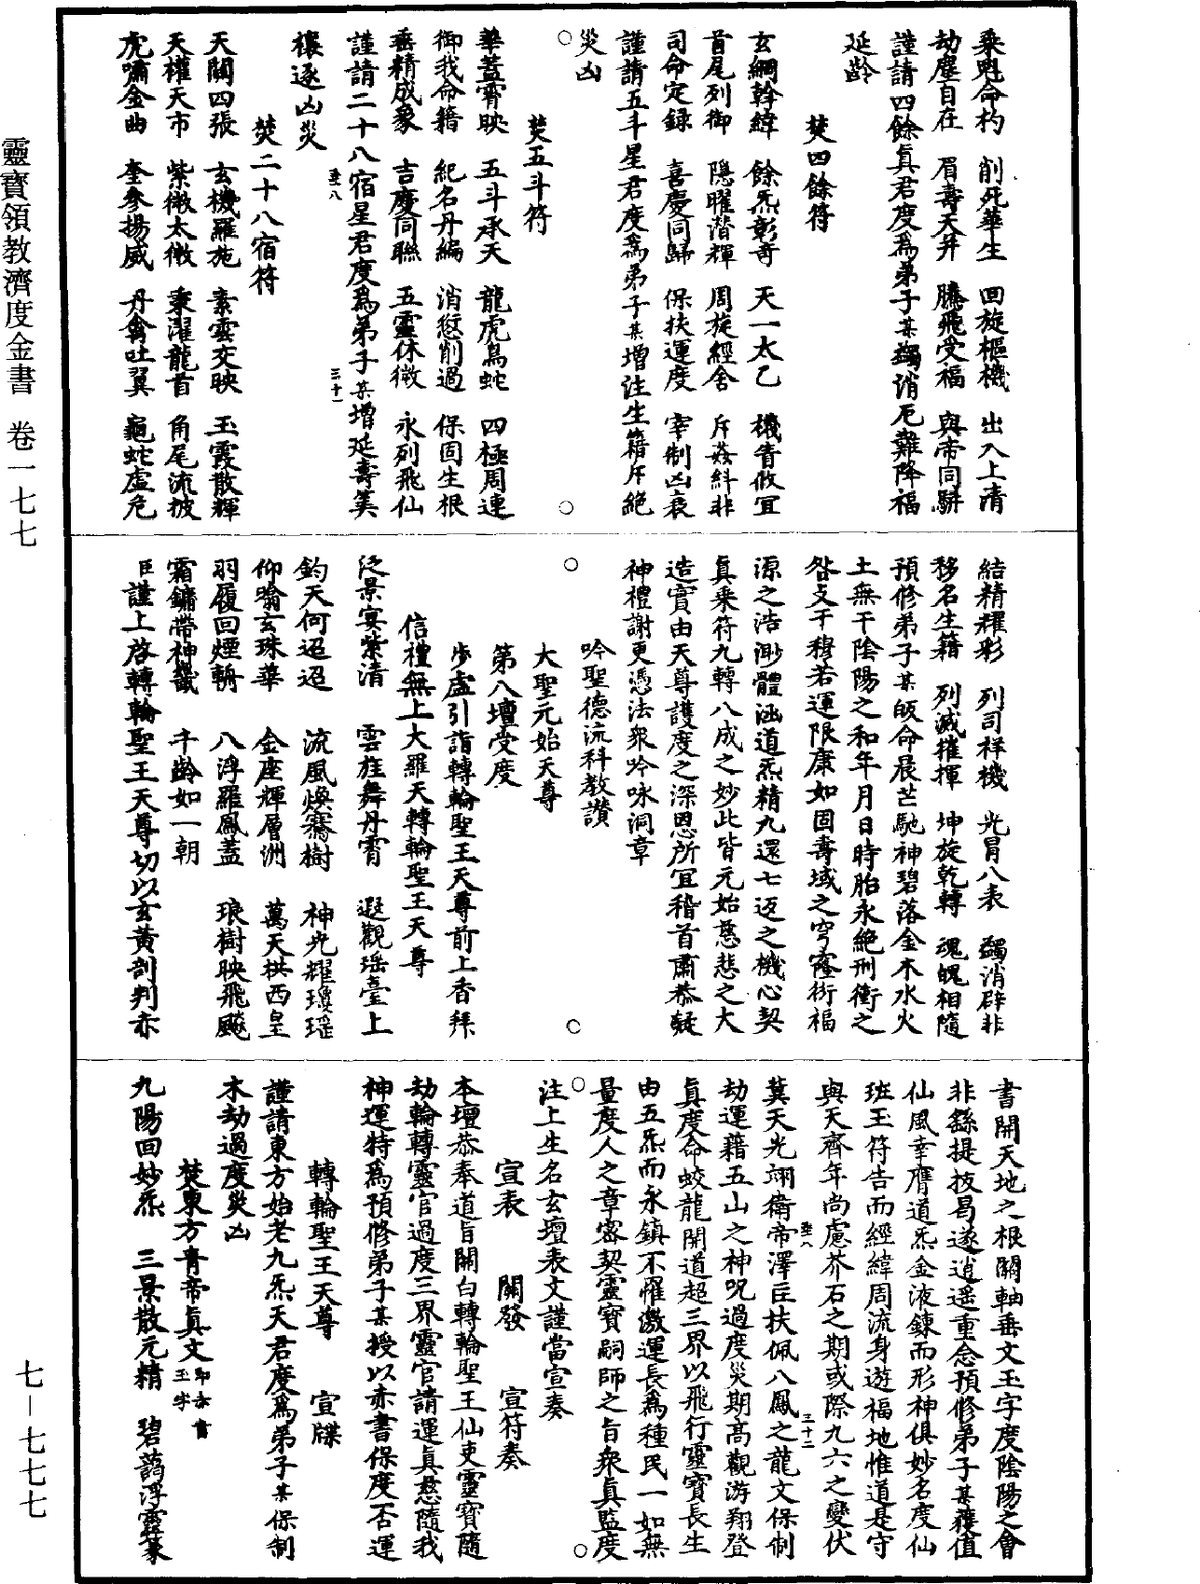 乘魁命杓　削死華生　回旋樞機　出入上清
劫塵自在　眉壽天井　騰飛受福　與帝同駢
謹請四餘真君度為弟子某蠲消厄難降福
延齡
焚四餘符
玄綱幹緯　餘炁彰奇　天一太乙　機眚攸宜
首尾列御　隱曜潛輝　周旋經舍　斥姦糾非
司命定録　喜慶同歸　保扶運度　宰制凶衰
謹請五斗星君度為弟子某增注生籍斥絕
災凶
焚五斗符
華蓋霄映　五斗承天　龍虎鳥蛇　四極周連
御我命籍　紀名丹編　消愆削過　保固生根
垂精成象　吉慶同聯　五靈休徵　永列飛仙
謹請二十八宿星君度為弟子某增延壽筭
禳逐凶災
焚二十八宿符
天關四張　玄機羅施　素雲交映　玉霞散輝
天權天市　紫微太微　秉濯龍首　角尾流披
虎嘯金曲　奎參揚威　丹禽吐翼　龜蛇虛危
結精耀彩　列司祥機　光冒八表　蠲消辟非
移名生籍　列滅摧揮　坤旋乾轉　魂魄相隨
預修弟子某皈命晨芒馳神碧落金木水火
土無干陰陽之和年月日時胎永絕刑衝之
咎支干穆若運限康如固壽域之穹窿衍福
源之浩渺體涵道炁精九還七返之機心契
真乘符九轉八成之妙此皆元始慈悲之大
造實由天尊護度之深恩所宜稽首肅恭凝
神禮謝更憑法衆吟咏洞章
吟聖德流科教讚
大聖元始天尊
第八壇受度
步虛引詣轉輪聖王天尊前上香拜
信禮無上大羅天轉輪聖王天尊
泛景宴紫清　雲旌舞丹霄　遐觀瑤臺上
鈞天何迢迢　流風煥騫樹　神光耀瓊瑤
仰喻玄珠華　金座輝層洲　萬天拱西皇
羽履回煙輧　八浮羅鳳蓋　琅樹映飛飈
霜鏞帶神璈　千齡如一朝
臣謹上啓轉輪聖王天尊切以玄黃剖判赤
書開天地之根關軸垂文玉字度陰陽之會
非繇提拔曷遂逍遥重念預修弟子某獲值
仙風幸膺道炁金液鍊而形神俱妙名度仙
班玉符告而經緯周流身遊福地惟道是守
與天齊年尚慮芥石之期或際九六之變伏
冀天光翊衛帝澤巨扶佩八鳳之龍文保制
劫運藉五山之神呪過度災期高觀游翔登
真度命蛟龍開道超三界以飛行靈寶長生
由五炁而永鎮不罹激運長為種民一如無
量度人之章密契靈寶嗣師之旨衆真監度
注上生名玄壇表文謹當宣奏
宣表　關發　宣符奏
本壇恭奉道旨關白轉輪聖王仙吏靈寶隨
劫輪轉靈官過度三界靈官請運真慈隨我
神運特為預修弟子某授以赤書保度否運
轉輪聖王天尊　宣牒
謹請東方始老九炁天君度為弟子某保制
木劫過度災凶
焚東方青帝真文即赤書玉字
九陽回妙炁　三景散元精　碧藹浮霄篆
靈寶領教濟度金書　卷一七七
七—七七七